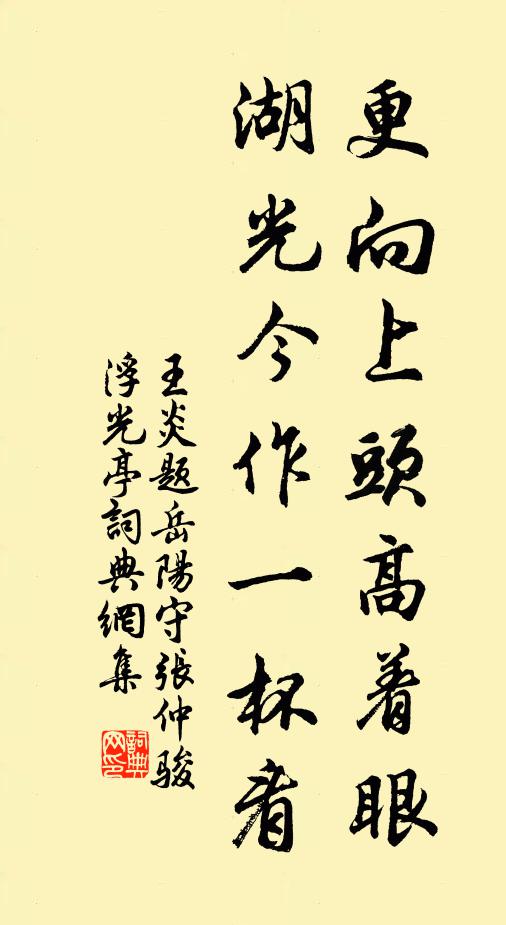 更向上頭高着眼
湖光今作一杯看
王炎題岳陽守張仲駿
浮光亭詞典網集
詞典
网印